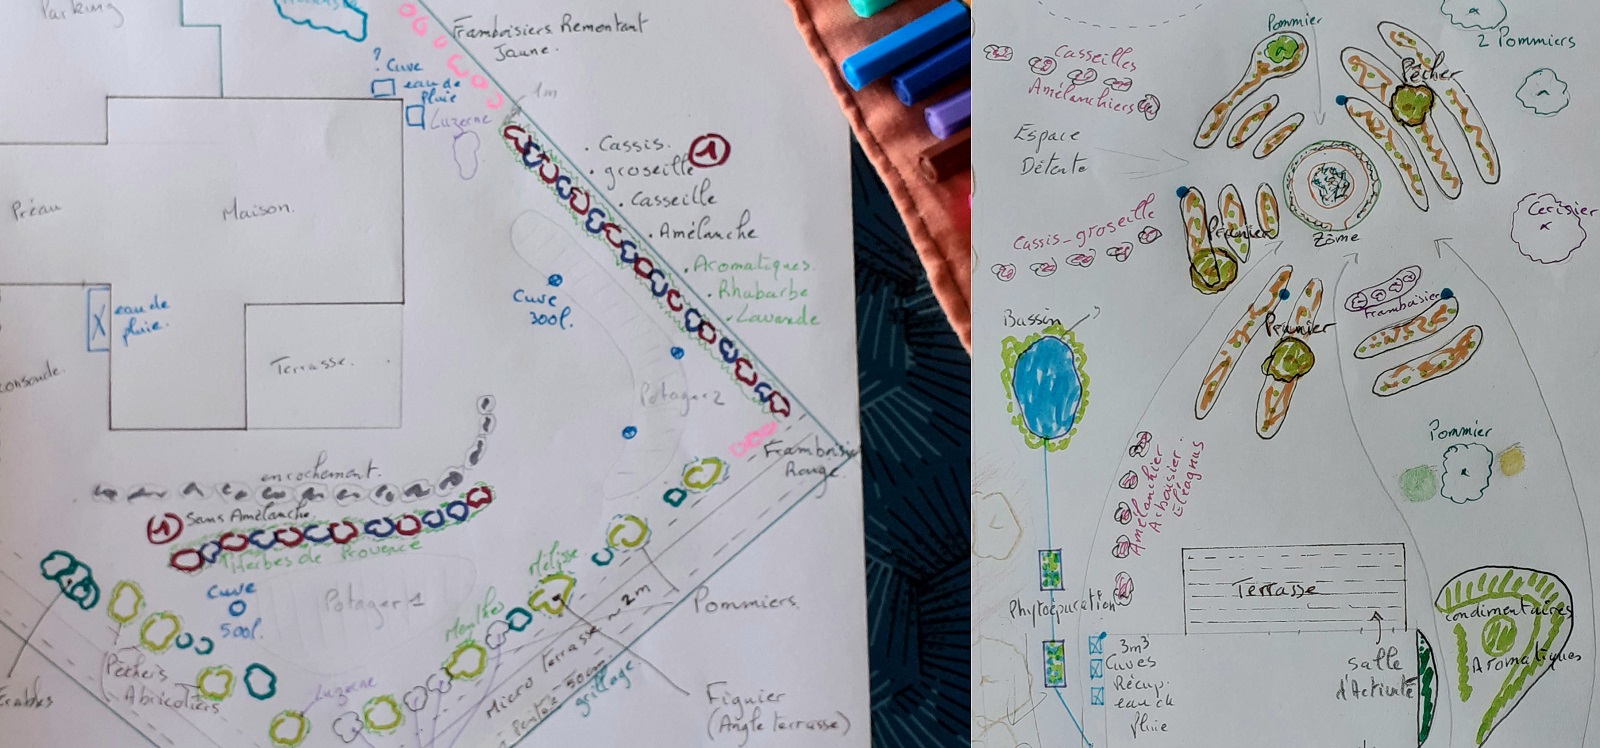 Parking
Framboisiers Remontant
Jaune.
? Cuve
eau de
pluie
Luzerne
1m
. Cassis.
. groseille
1
. Casseille
. Amélanche
. Aromatiques.
. Rhubarbe
. Lavande
Préau
Maison.
Cuve
300l.
eau de
pluie.
Terrasse.
onsoude.
Potager 2
Framboisier
Rouge.
enrochement.
1 Sans Amélanche.
Herbes de Provence
Cuve
500l.
Potager 1
Mélisse
Menthe
2m
Pommiers.
Micro Terrasse
Pente 50cm
grillage.
Pêchers
Abricotiers
Erables
Luzerne
Figuier
(Angle terrasse)
Pommier
2 Pommiers
Casseilles
Amélanchiers
Pêcher
Espace
Détente
Cassis-groseille
Prunier
Zôme
Cerisier
Framboisier
Bassin
Prunier
Pommier
Amélanchier
Arbousier
Eleagnus
Terrasse
Phytoépuration
3m3
Cuves
Récup.
eau de
pluie
Salle
d'Activité
Condimentaires
Aromatiques